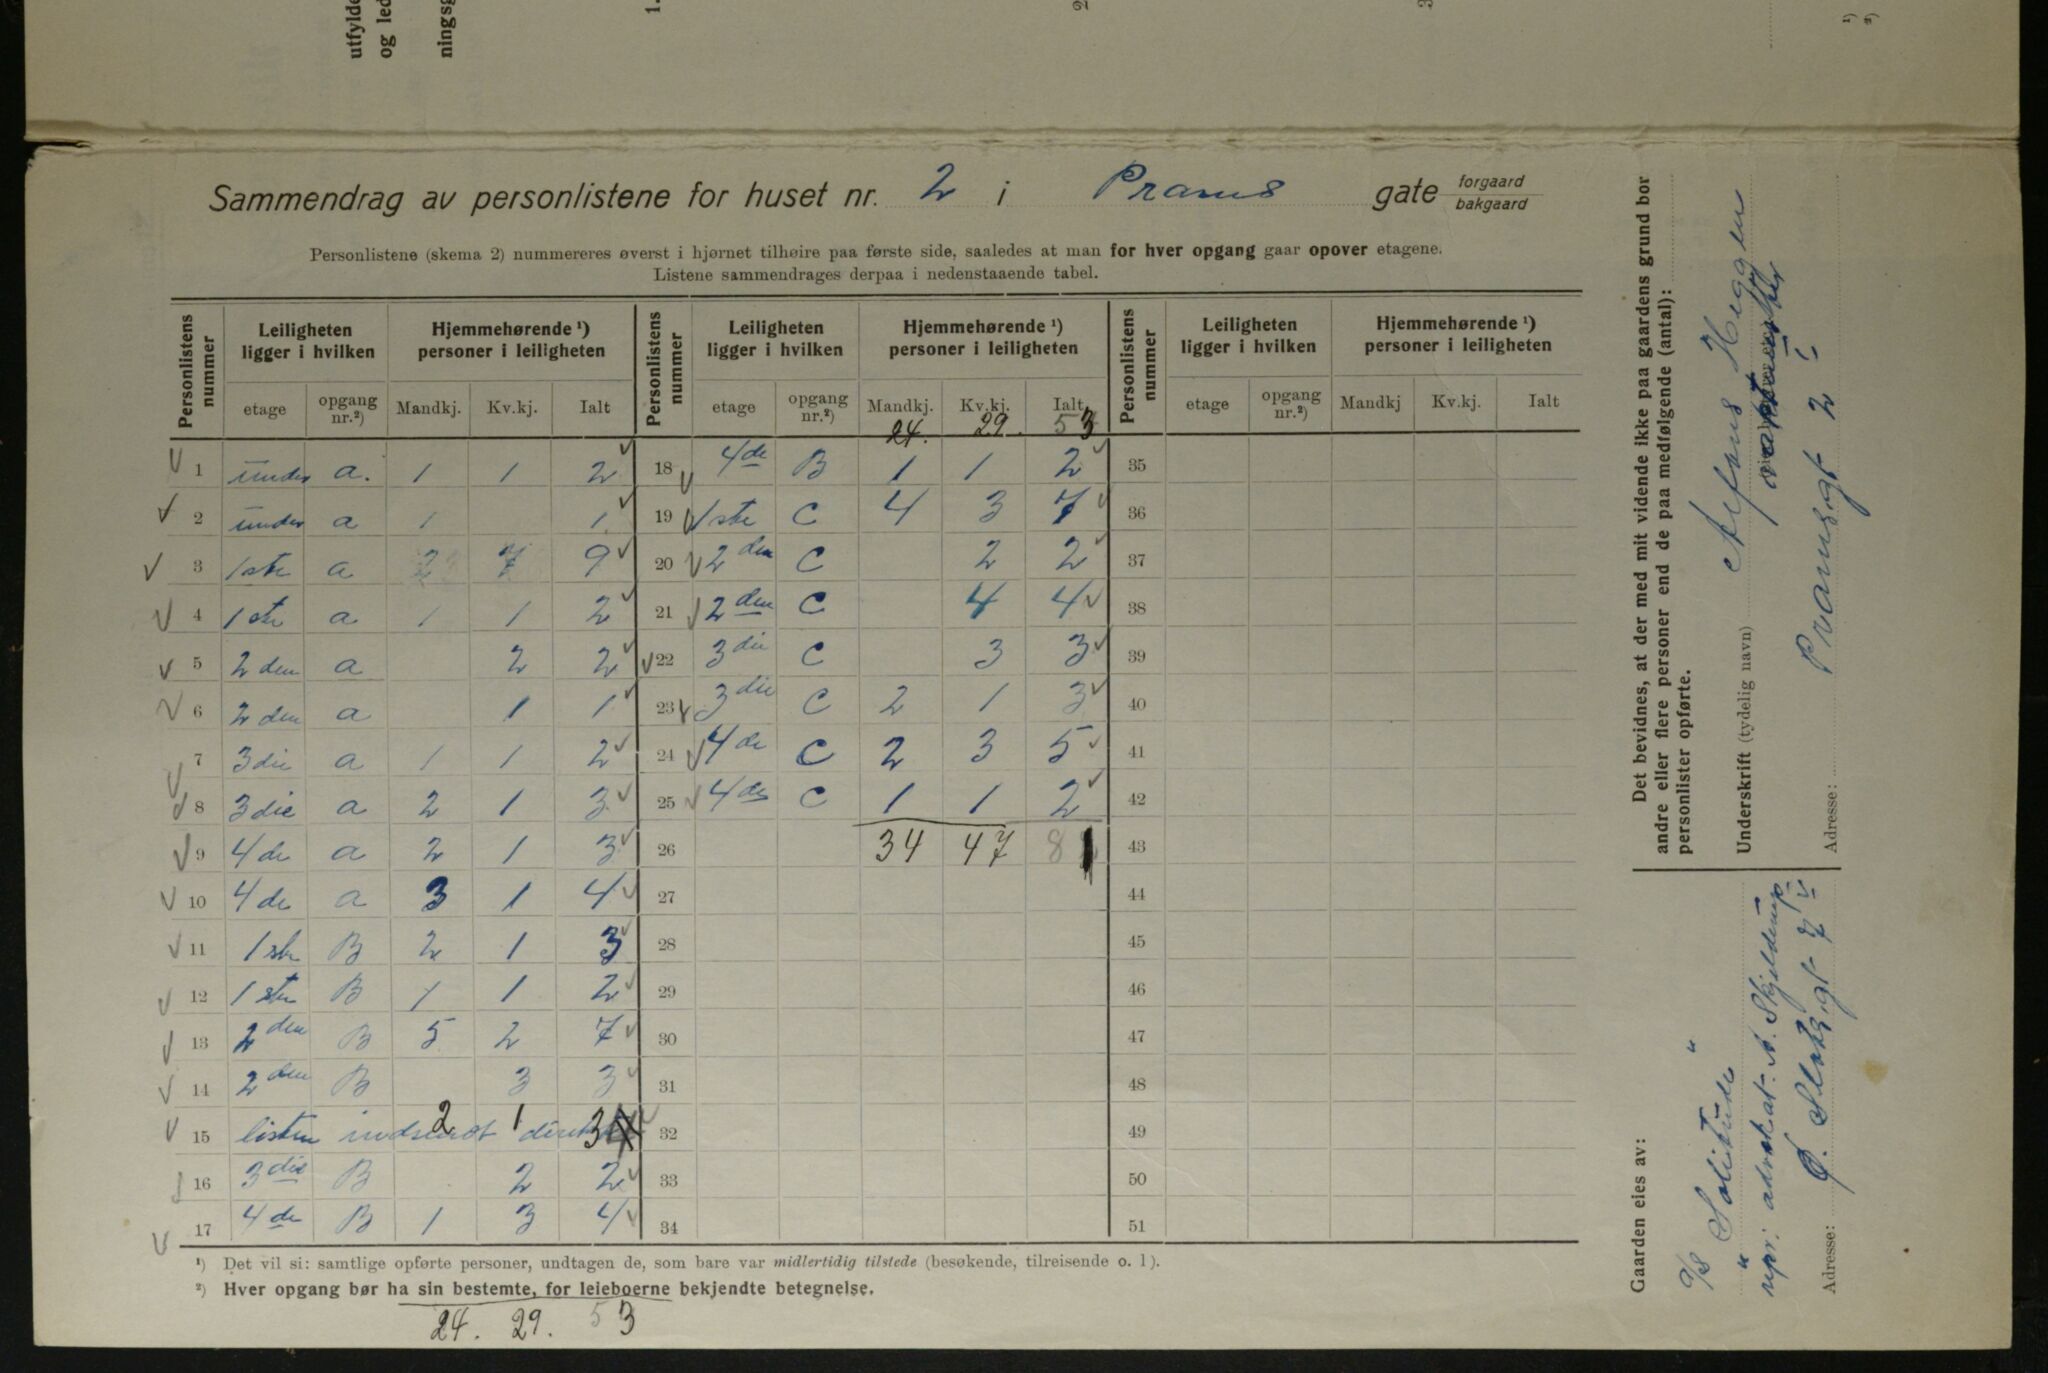 utfylde
og led
ningsg
1.
2
3
1)
2)
Sammendrag av personlistene for huset nr. 2 i Prams gate forgaard bakgaard
Personlistene (skema 2) nummereres øverst i hjørnet tilhøire paa første side, saaledes at man for hver opgang gaar opover etagene.
Listene sammendrages derpaa i nedenstaaende tabel.
Personlistens nummer | Leiligheten ligger i hvilken | Hjemmehørende ¹) personer i leiligheten | Personlistens nummer | Leiligheten ligger i hvilken | Hjemmehørende ¹) personer i leiligheten | Personlistens nummer | Leiligheten ligger i hvilken | Hjemmehørende ¹) personer i leiligheten
etage | opgang nr.²) | Mandkj. | Kv.kj. | Ialt | etage | opgang nr.²) | Mandkj. | Kv.kj. | Ialt | etage | opgang nr.²) | Mandkj | Kv.kj. | Ialt
24. 29. 53
1 under a. 1 1 2 18 4de B 1 1 2 35
2 under a 1 1 19 1ste C 4 3 7 36
3 1ste a 2 7 9 20 2den C 2 2 37
4 1ste a 1 1 2 21 2den C 4 4 38
5 2den a 2 2 22 3die C 3 3 39
6 2den a 1 1 23 3die C 2 1 3 40
7 3die a 1 1 2 24 4de C 2 3 5 41
8 3die a 2 1 3 25 4de C 1 1 2 42
9 4de a 2 1 3 26 34 47 81 43
10 4de a 3 1 4 27 44
11 1ste B 2 1 3 28 45
12 1ste B 1 1 2 29 46
13 2den B 5 2 7 30 47
14 2den B 3 3 31 48
15 listen indsendt direkte 2 1 3 32 49
16 3die B 2 2 33 50
17 4de B 1 3 4 34 51
¹) Det vil si: samtlige opførte personer, undtagen de, som bare var midlertidig tilstede (besøkende, tilreisende o. l).
²) Hver opgang bør ha sin bestemte, for leieboerne bekjendte betegnelse.
24. 29. 53
Det bevidnes, at der med mit vidende ikke paa gaardens grund bor
andre eller flere personer end de paa medfølgende (antal):
personlister opførte.
Underskrift (tydelig navn) Heggen
Adresse: Pramsgt 2
Gaarden eies av:
A/S Solitude
repr: advokat A. Skjelderup
Adresse: Slotsgt 7